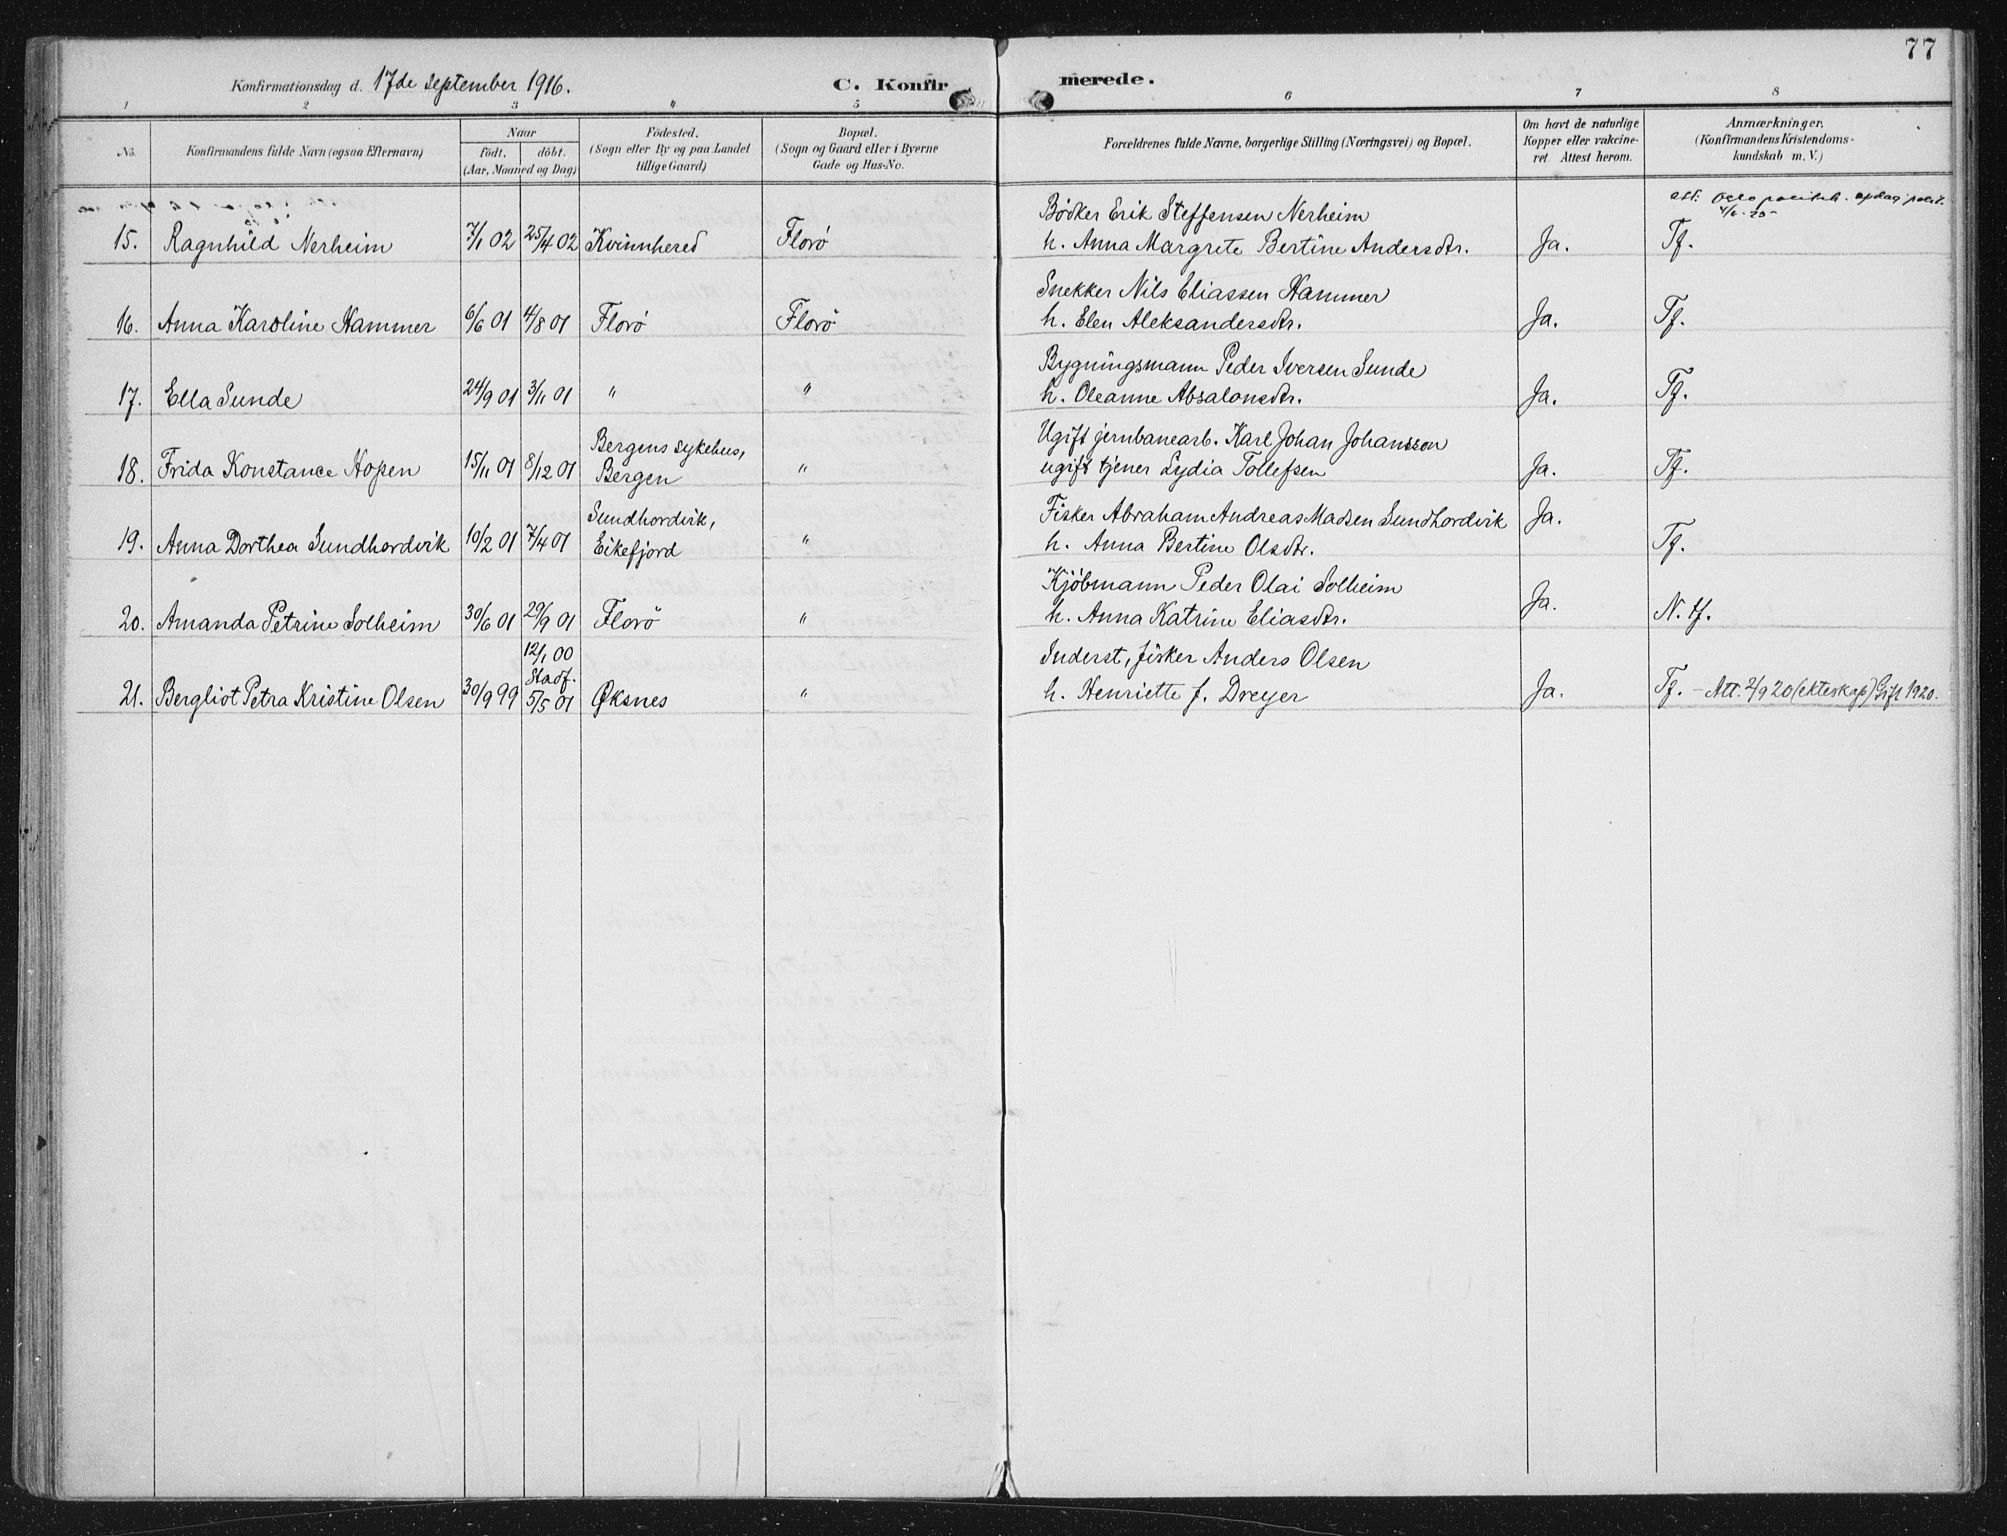 77
Konfirmationsdag d. 17de september 1916. C. Konfir merede.
1 2 3 " 5 6 7 8
No. Konfirmandens fulde Navn (ogsaa Efternavn) Naar Födt. döbt. (Aar, Maaned og Dag) Födested. (Sogn eller By og paa Landet tillige Gaard) Bopæl. (Sogn og Gaard eller i Byerne Gade og Hus-No. Forældrenes fulde Navne, borgerlige Stilling (Næringsvei) og Bopæl. Om havt de naturlige Kopper eller vakcineret. Attest herom. Anmærkninger. (Konfirmandens Kristendomskundskab m. V.)
Bödker Erik Steffensen Nerheim att. Oslo
15. Ragnhild Nerheim 7/1 02 25/4 02 Kvinnhered Florö h. Anna Margrete Bertine Andersdtr. Ja. Tf.
Snekker Nils Eliassen Hammer
16. Anna Karoline Hammer 6/6 01 4/8 01 Florö Florö h. Elen Aleksandersdtr. Ja. Tf.
Bygningsmann Peder Iversen Sunde
17. Ella Sunde 24/9 01 3/11 01 " " h. Oleanne Absalonsdtr. Ja. Tf.
Bergens sykehus, Ugift jernbanearb. Karl Johan Johansson
18. Frida Konstance Hopen 15/11 01 8/12 01 Bergen " ugift tjener Lydia Tollefsen Ja. Tf.
Sundhordvik, Fisker Abraham Andreas Madsen Sundhordvik Ja.
19. Anna Dorthea Sundhordvik 10/2 01 7/4 01 Eikefjord " h. Anna Bertine Olsdtr. Tf.
Kjöbmann Peder Olai Solheim
20. Amanda Petrine Solheim 30/6 01 29/9 01 Florö " h. Anna Katrine Eliasdtr. Ja. N. tf.
12/1 00 Inderst, fisker Anders Olsen
Stadf.
21. Bergliot Petra Kristine Olsen 30/9 99 5/5 01 Øksnes " h. Henriette f. Dreyer Ja. Tf. - Att. 2/9 20 (ekteskap) Gift 1920.